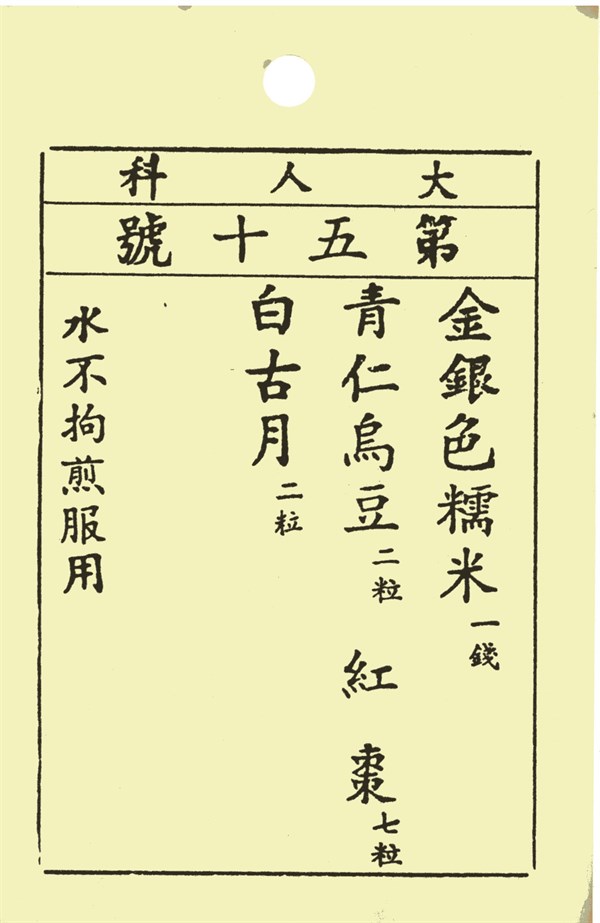 大人科
第五十號
金銀色糯米一錢
青仁烏豆二粒 紅棗七粒
白古月二粒
水不拘煎服用